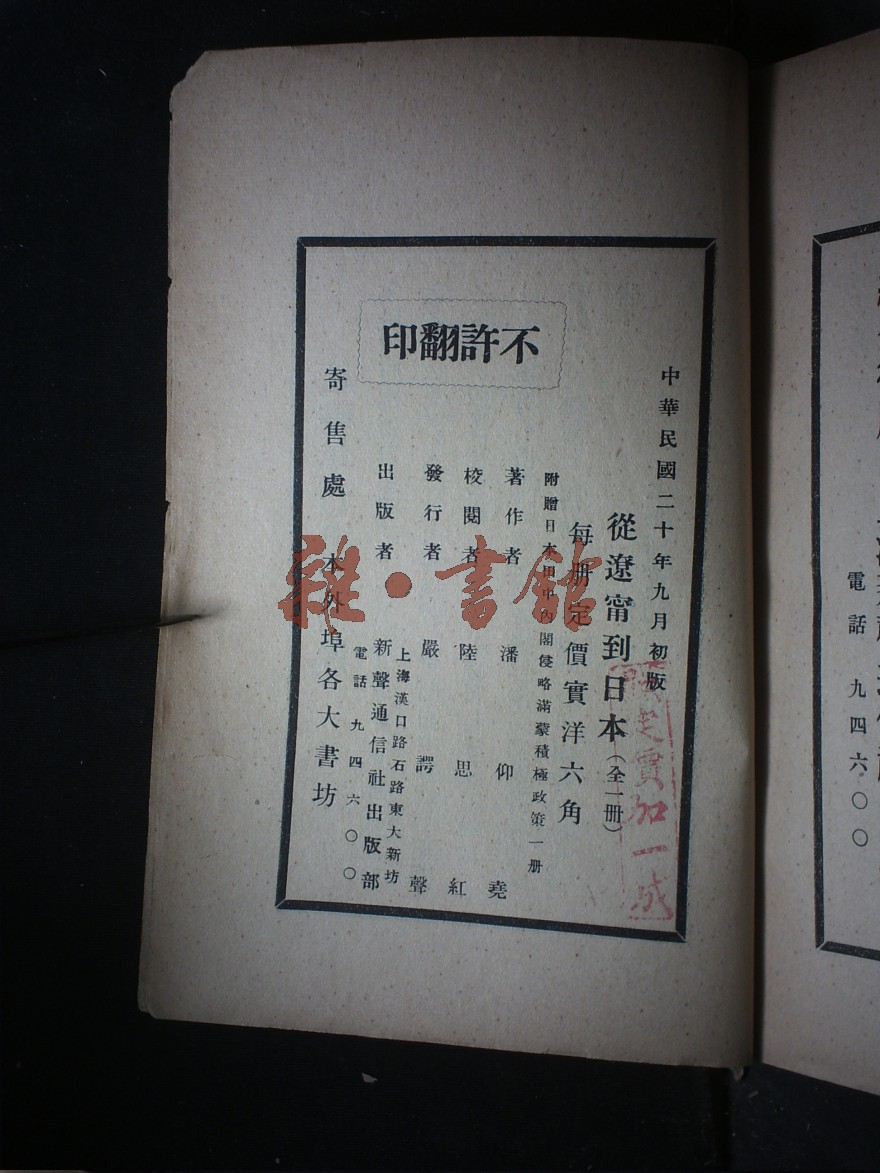 不許翻印
中華民國二十年九月初版
從遼甯到日本（全一册）
每册定價實洋六角
附贈日本田中內閣侵略滿蒙積極政策一册
著作者 潘仰堯
校閱者 陸思紅
發行者 嚴諤聲
上海漢口路石路東大新坊
出版者 新聲通信社出版部
電話 九四六〇〇
寄售處 本外埠各大書坊
實加一成
雜·書館
電話 九四六〇〇